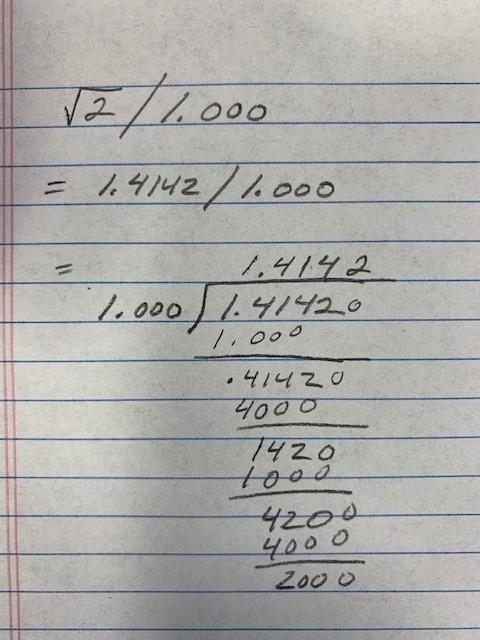 √2 / 1.000
= 1.4142 / 1.000
= 1.4142
1.000 √1.41420
1.000
.41420
4000
1420
1000
4200
4000
2000